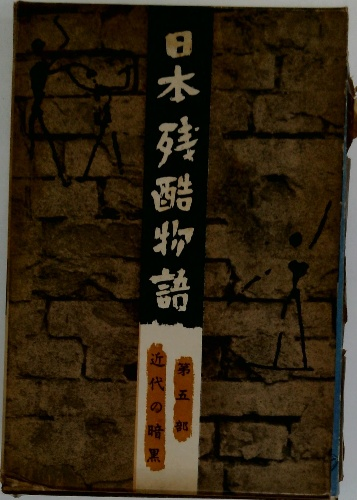 日本残酷物語
第五部
近代の暗黒